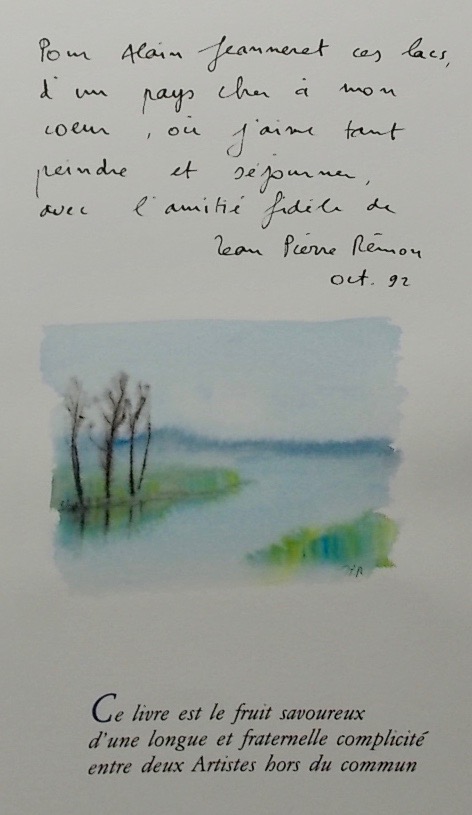 Pour Alain Jeanneret ces lacs,
d'un pays cher à mon
coeur, où j'aime tant
peindre et séjourner,
avec l'amitié fidèle de
Jean Pierre Rémon
oct. 92
JPR
Ce livre est le fruit savoureux
d'une longue et fraternelle complicité
entre deux Artistes hors du commun